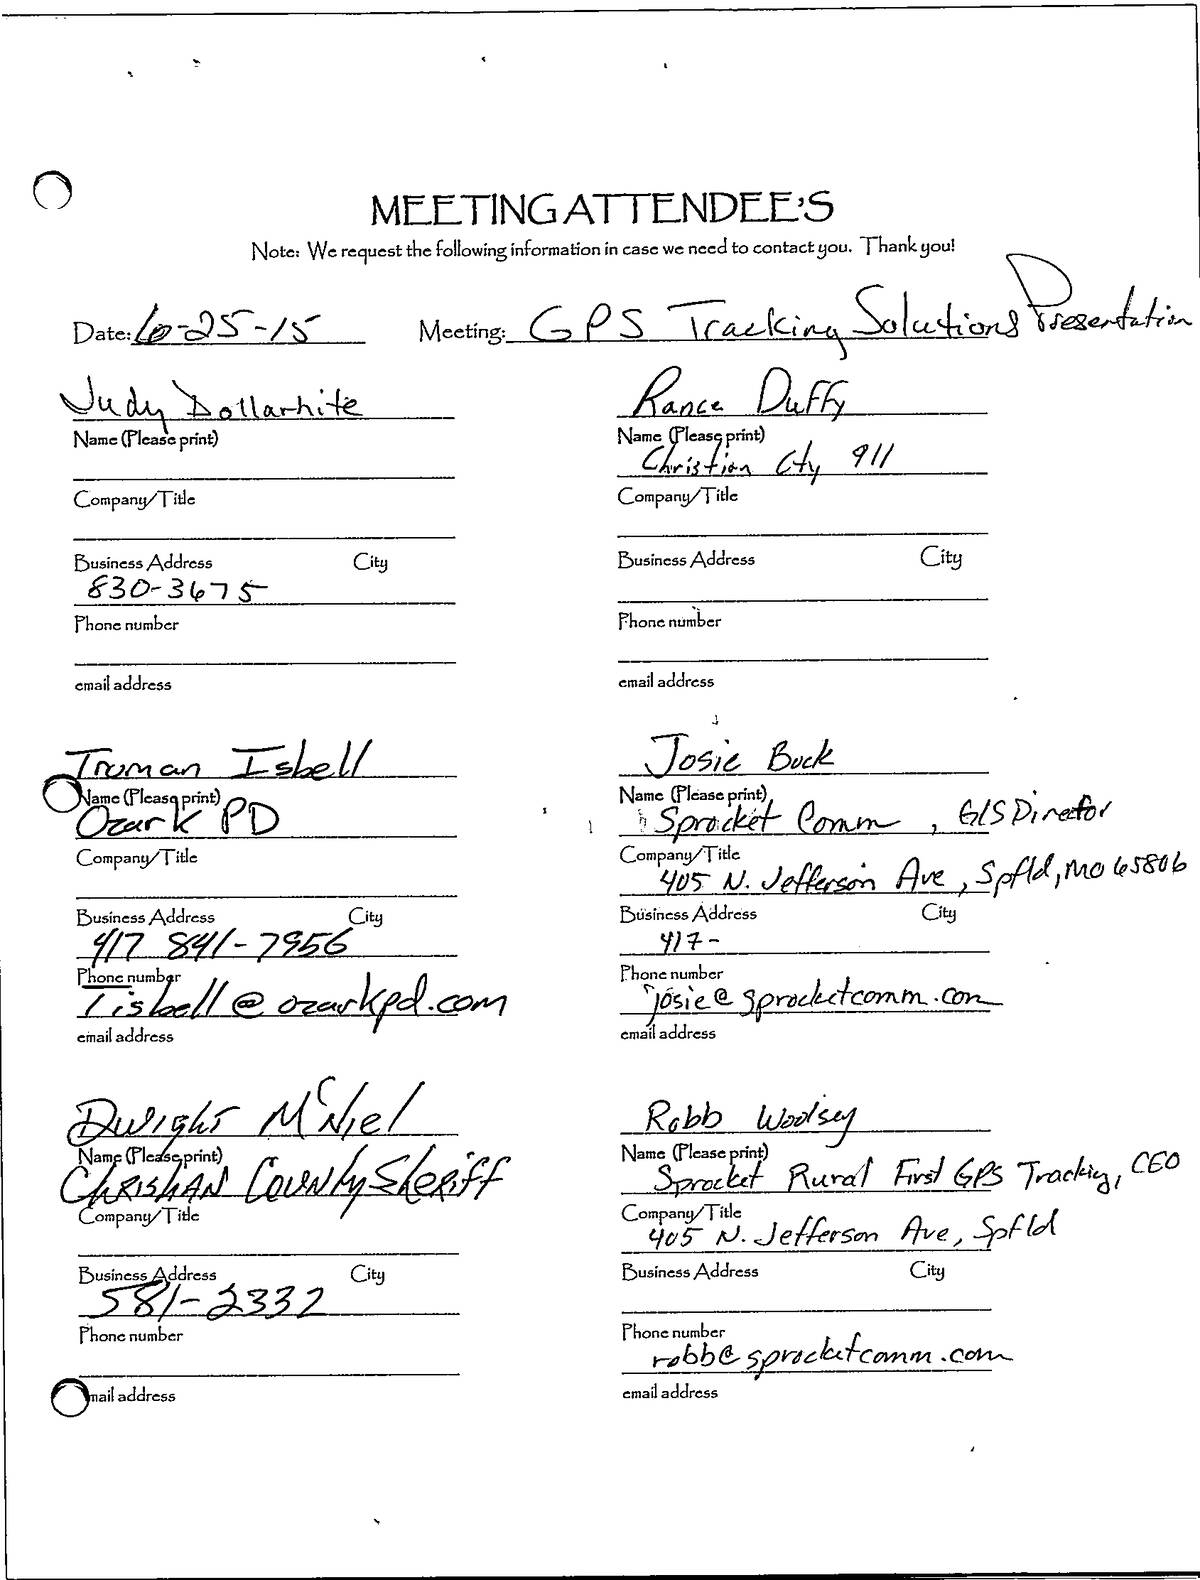 MEETING ATTENDEE'S
Note: We request the following information in case we need to contact you. Thank you!
Date: 6-25-15 Meeting: GPS Tracking Solutions Presentation
Judy Dollarhite
Name (Please print)
Company/Title
Business Address City
830-3675
Phone number
email address
Rance Duffy
Name (Please print)
Christian Cty 911
Company/Title
Business Address City
Phone number
email address
Truman Isbell
Name (Please print)
Ozark PD
Company/Title
Business Address City
417 841-7956
Phone number
Tisbell@ozarkpd.com
email address
Josie Buck
Name (Please print)
Sprocket Comm, GIS Director
Company/Title
405 N. Jefferson Ave, Spfld, MO 65806
Business Address City
417-
Phone number
josie@sprocketcomm.com
email address
Dwight McNiel
Name (Please print)
Christian County Sheriff
Company/Title
Business Address City
581-2332
Phone number
email address
Robb Woolsey
Name (Please print)
Sprocket Rural First GPS Tracking, CEO
Company/Title
405 N. Jefferson Ave, Spfld
Business Address City
Phone number
robb@sprocketcomm.com
email address